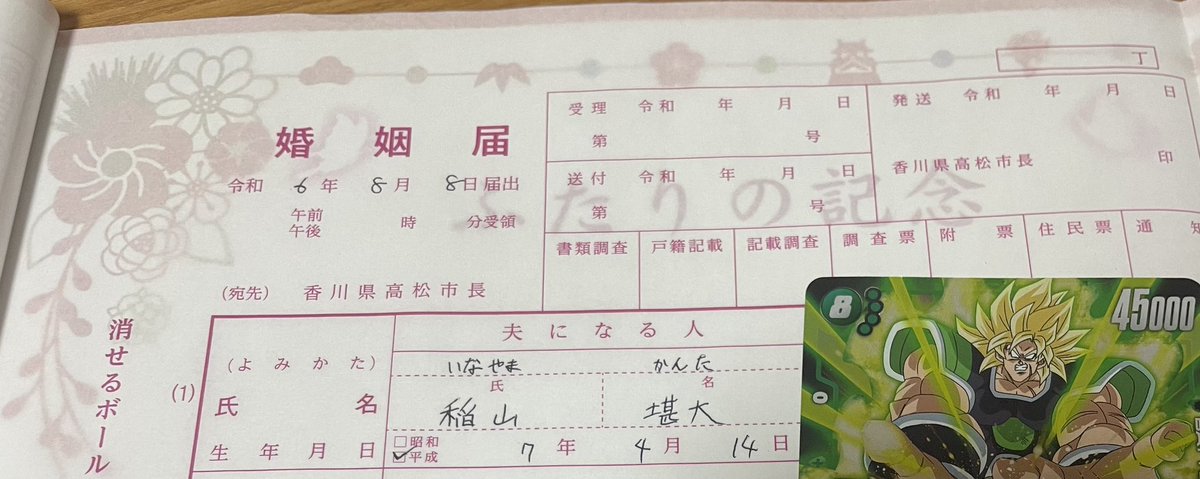 丁
婚姻届
令和 6年 8月 8日届出
午前
午後 時 分受領
(宛先) 香川県高松市長
受理 令和 年 月 日
第 号
送付 令和 年 月 日
第 号
発送 令和 年 月 日
香川県高松市長 印
ふたりの記念
書類調査 戸籍記載 記載調査 調査票 附票 住民票 通知
消せるボール
(1)
夫になる人
(よみかた) いなやま かんた
氏 名
氏名 稲山 堪大
生年月日 □昭和
☑平成 7年 4月 14日
8
45000